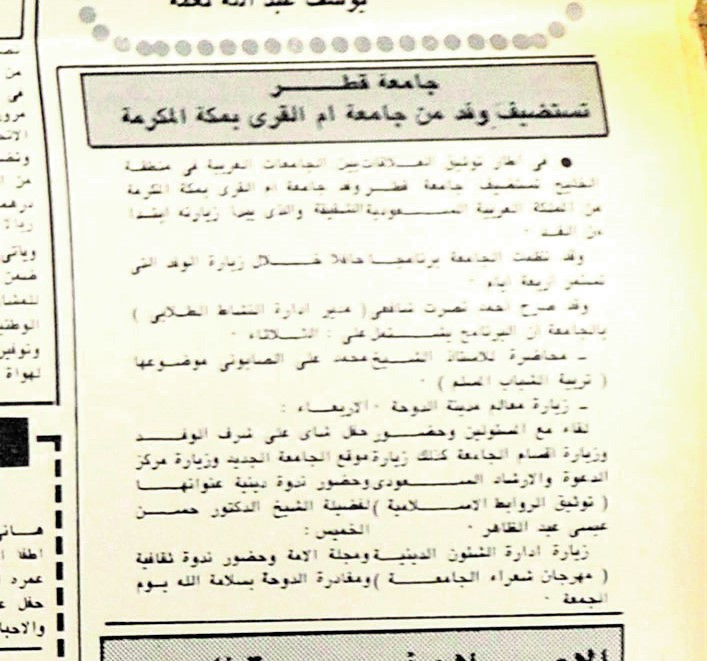 يوسف عبد الله نعمة
جامعة قطر
تستضيف وفد من جامعة ام القرى بمكة المكرمة
● في اطار توثيق العلاقات بين الجامعات العربية في منطقة
الخليج تستضيف جامعة قطر وفد جامعة ام القرى بمكة المكرمة
من المملكة العربية السعودية الشقيقة والذي يبدأ زيارته ابتدا
من الغد ٠
وقد نظمت الجامعة برنامجا حافلا خلال زيارة الوفد التي
تستمر اربعة ايام ٠
وقد صرح احمد نصرت شافعي ( مدير ادارة النشاط الطلابي )
بالجامعة ان البرنامج يشتمل على : الثلاثاء ٠
ـ محاضرة للاستاذ الشيخ محمد على الصابوني موضوعها
( تربية الشباب المسلم ) ٠
ـ زيارة معالم مدينة الدوحة ٠ الاربعاء :
لقاء مع المسئولين وحضور حفل شاى على شرف الوفد
وزيارة اقسام الجامعة كذلك زيارة موقع الجامعة الجديد وزيارة مركز
الدعوة والارشاد السعودى وحضور ندوة دينية عنوانها
( توثيق الروابط الاسلامية ) لفضيلة الشيخ الدكتور حسن
عيسى عبد الظاهر ٠ الخميس :
زيارة ادارة الشئون الدينية ومجلة الامة وحضور ندوة ثقافية
( مهرجان شعراء الجامعة ) ومغادرة الدوحة بسلامة الله يوم
الجمعة ٠
من
في
الاتحا
من ا
درهم
ريالا
وياتي
ضمن
للمشار
الوطنية
وتوفير
لهواة
هاني
اطفا
عمره
حفل
والاحبا